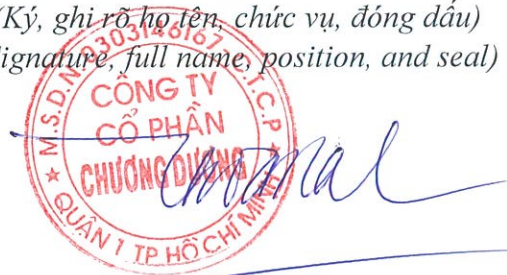 (Ký, ghi rõ họ tên, chức vụ, đóng dấu)
Signature, full name, position, and seal)
M.S.D.N: 0303146167 C.T.C.P
CÔNG TY
CỔ PHẦN
CHƯƠNG DƯƠNG
QUẬN 1 TP HỒ CHÍ MINH